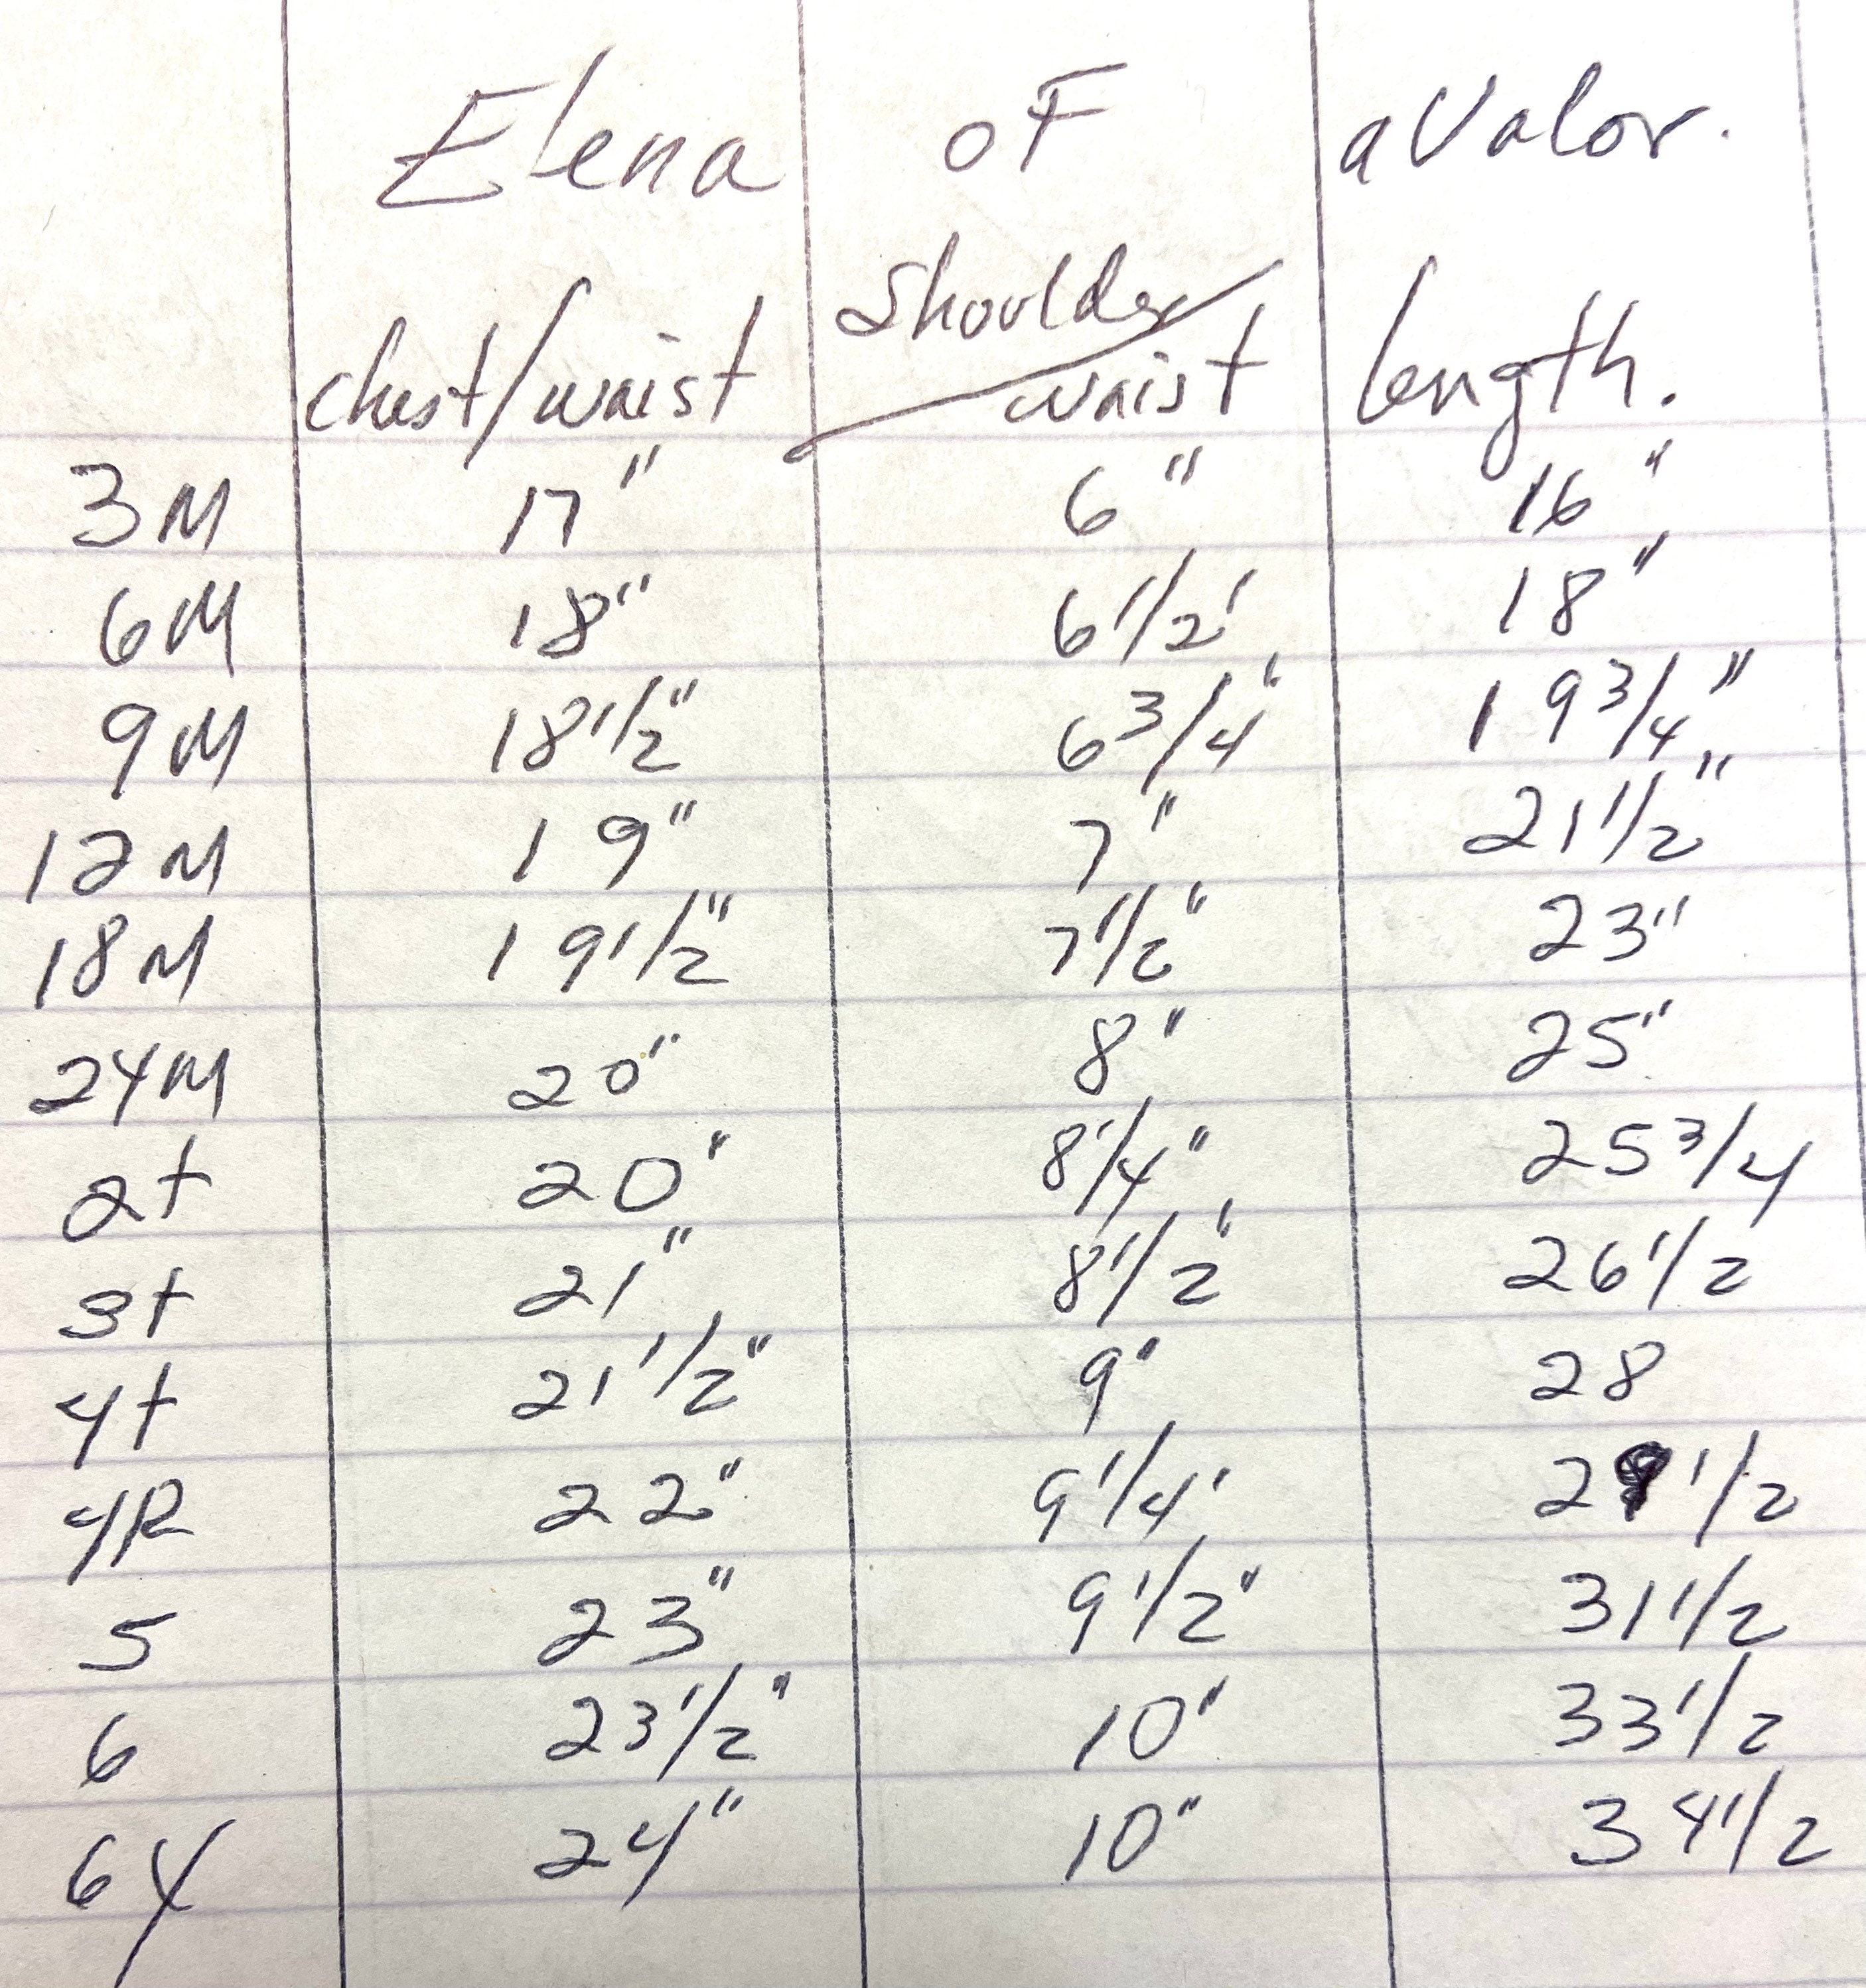 Elena of aValor.
chest/waist shoulder/waist length.
3M 17" 6" 16"
6M 18" 6 1/2" 18"
9M 18 1/2" 6 3/4" 19 3/4"
12M 19" 7" 21 1/2"
18M 19 1/2" 7 1/2" 23"
24M 20" 8" 25"
2t 20" 8 1/4" 25 3/4
3t 21" 8 1/2" 26 1/2
4t 21 1/2" 9" 28
4R 22" 9 1/4" 29 1/2
5 23" 9 1/2" 31 1/2
6 23 1/2" 10" 33 1/2
6X 24" 10" 34 1/2